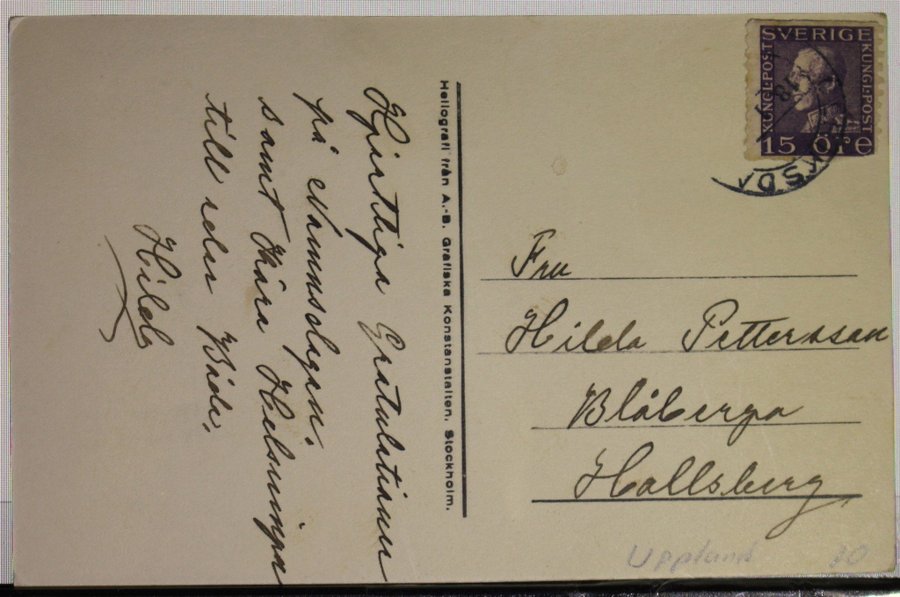 Hjärtliga Gratulationer
på Namnsdagen.
samt Kära Helsningar
till eder Båda,
Hilda
Heliografi från A.-B. Grafiska Konstanstalten. Stockholm.
SVERIGE
KUNGL·POST
KUNGL·POST
15 ÖRE
Fru
Hilda Pettersson
Blåberga
Hallsberg
Uppland 20